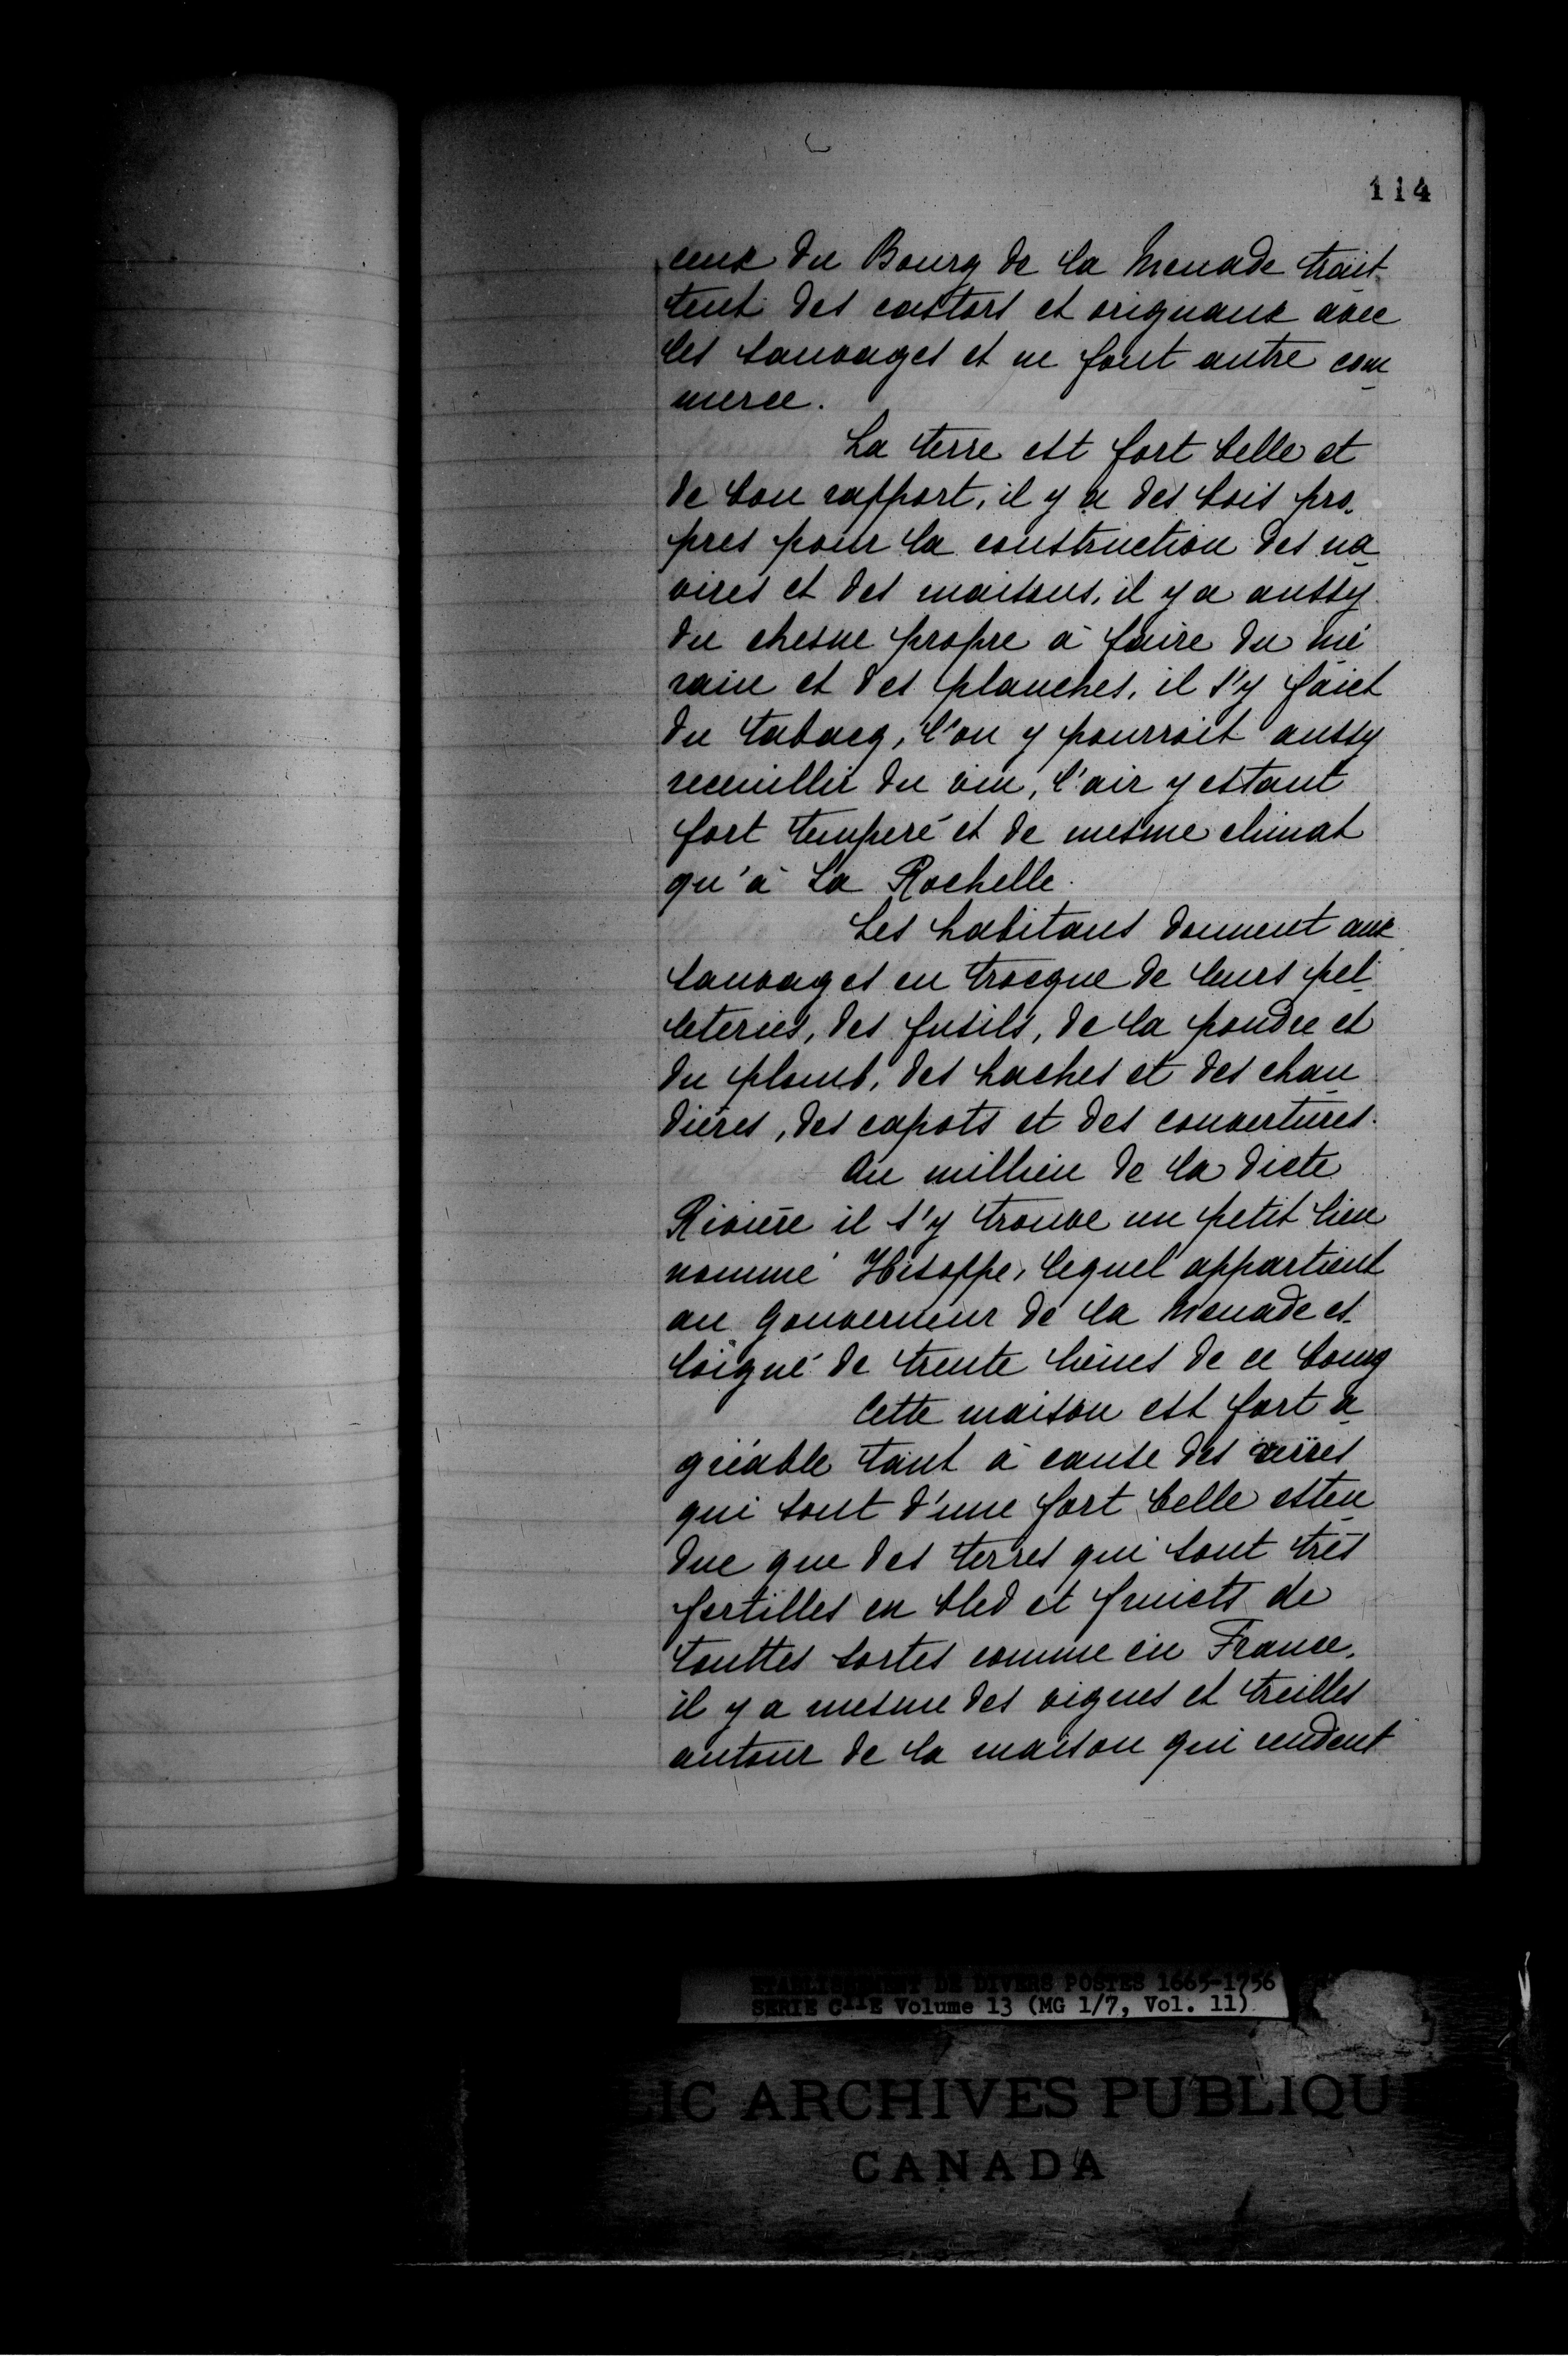 114
ceux du Bourg de la Menade trait-
tent des castors et orignaux avec
les sauvages et ne font autre com
merce.
La terre est fort belle et
de bon rapport, il y a des bois pro-
pres pour la construction des na
vires et des maisons, il y a aussy
du chesne propre à faire du mé
rain et des planches, il s'y faict
du tabacq, l'on y pourroit aussy
receuillir du vin, l'air y estant
fort temperé et de mesme climat
qu'à La Rochelle.
Les habitans donnent aux
sauvages en trocque de leurs pel
leteries, des fusils, de la poudre et
du plomb, des haches et des chau
dières, des capots et des couvertures.
Au millieu de la dicte
Rivière il s'y trouve un petit lieu
nommé Hisoppe, lequel appartient
au Gouverneur de la Menade es-
loigné de trente lieues de ce bourg
Cette maison est fort a
gréable tant à cause des
qui sont d'une fort belle esten
due que des terres qui sont très
fertilles en bled et fruicts de
touttes sortes comme en France,
il y a mesme des vignes et treilles
autour de la maison qui rendent
ETABLISSEMENT DE DIVERS POSTES 1665-1756
SERIE C11E Volume 13 (MG 1/7, Vol. 11)
LIC ARCHIVES PUBLIQU
CANADA